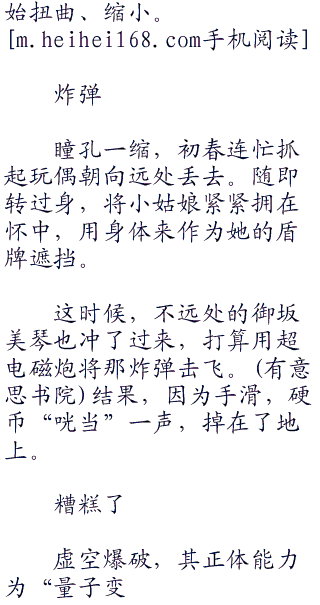 始扭曲、缩小。
[m.heihei168.com手机阅读]
炸弹
瞳孔一缩，初春连忙抓
起玩偶朝向远处丢去。随即
转过身，将小姑娘紧紧拥在
怀中，用身体来作为她的盾
牌遮挡。
这时候，不远处的御坂
美琴也冲了过来，打算用超
电磁炮将那炸弹击飞。(有意
思书院)结果，因为手滑，硬
币“咣当”一声，掉在了地
上。
糟糕了
虚空爆破，其正体能力
为“量子变